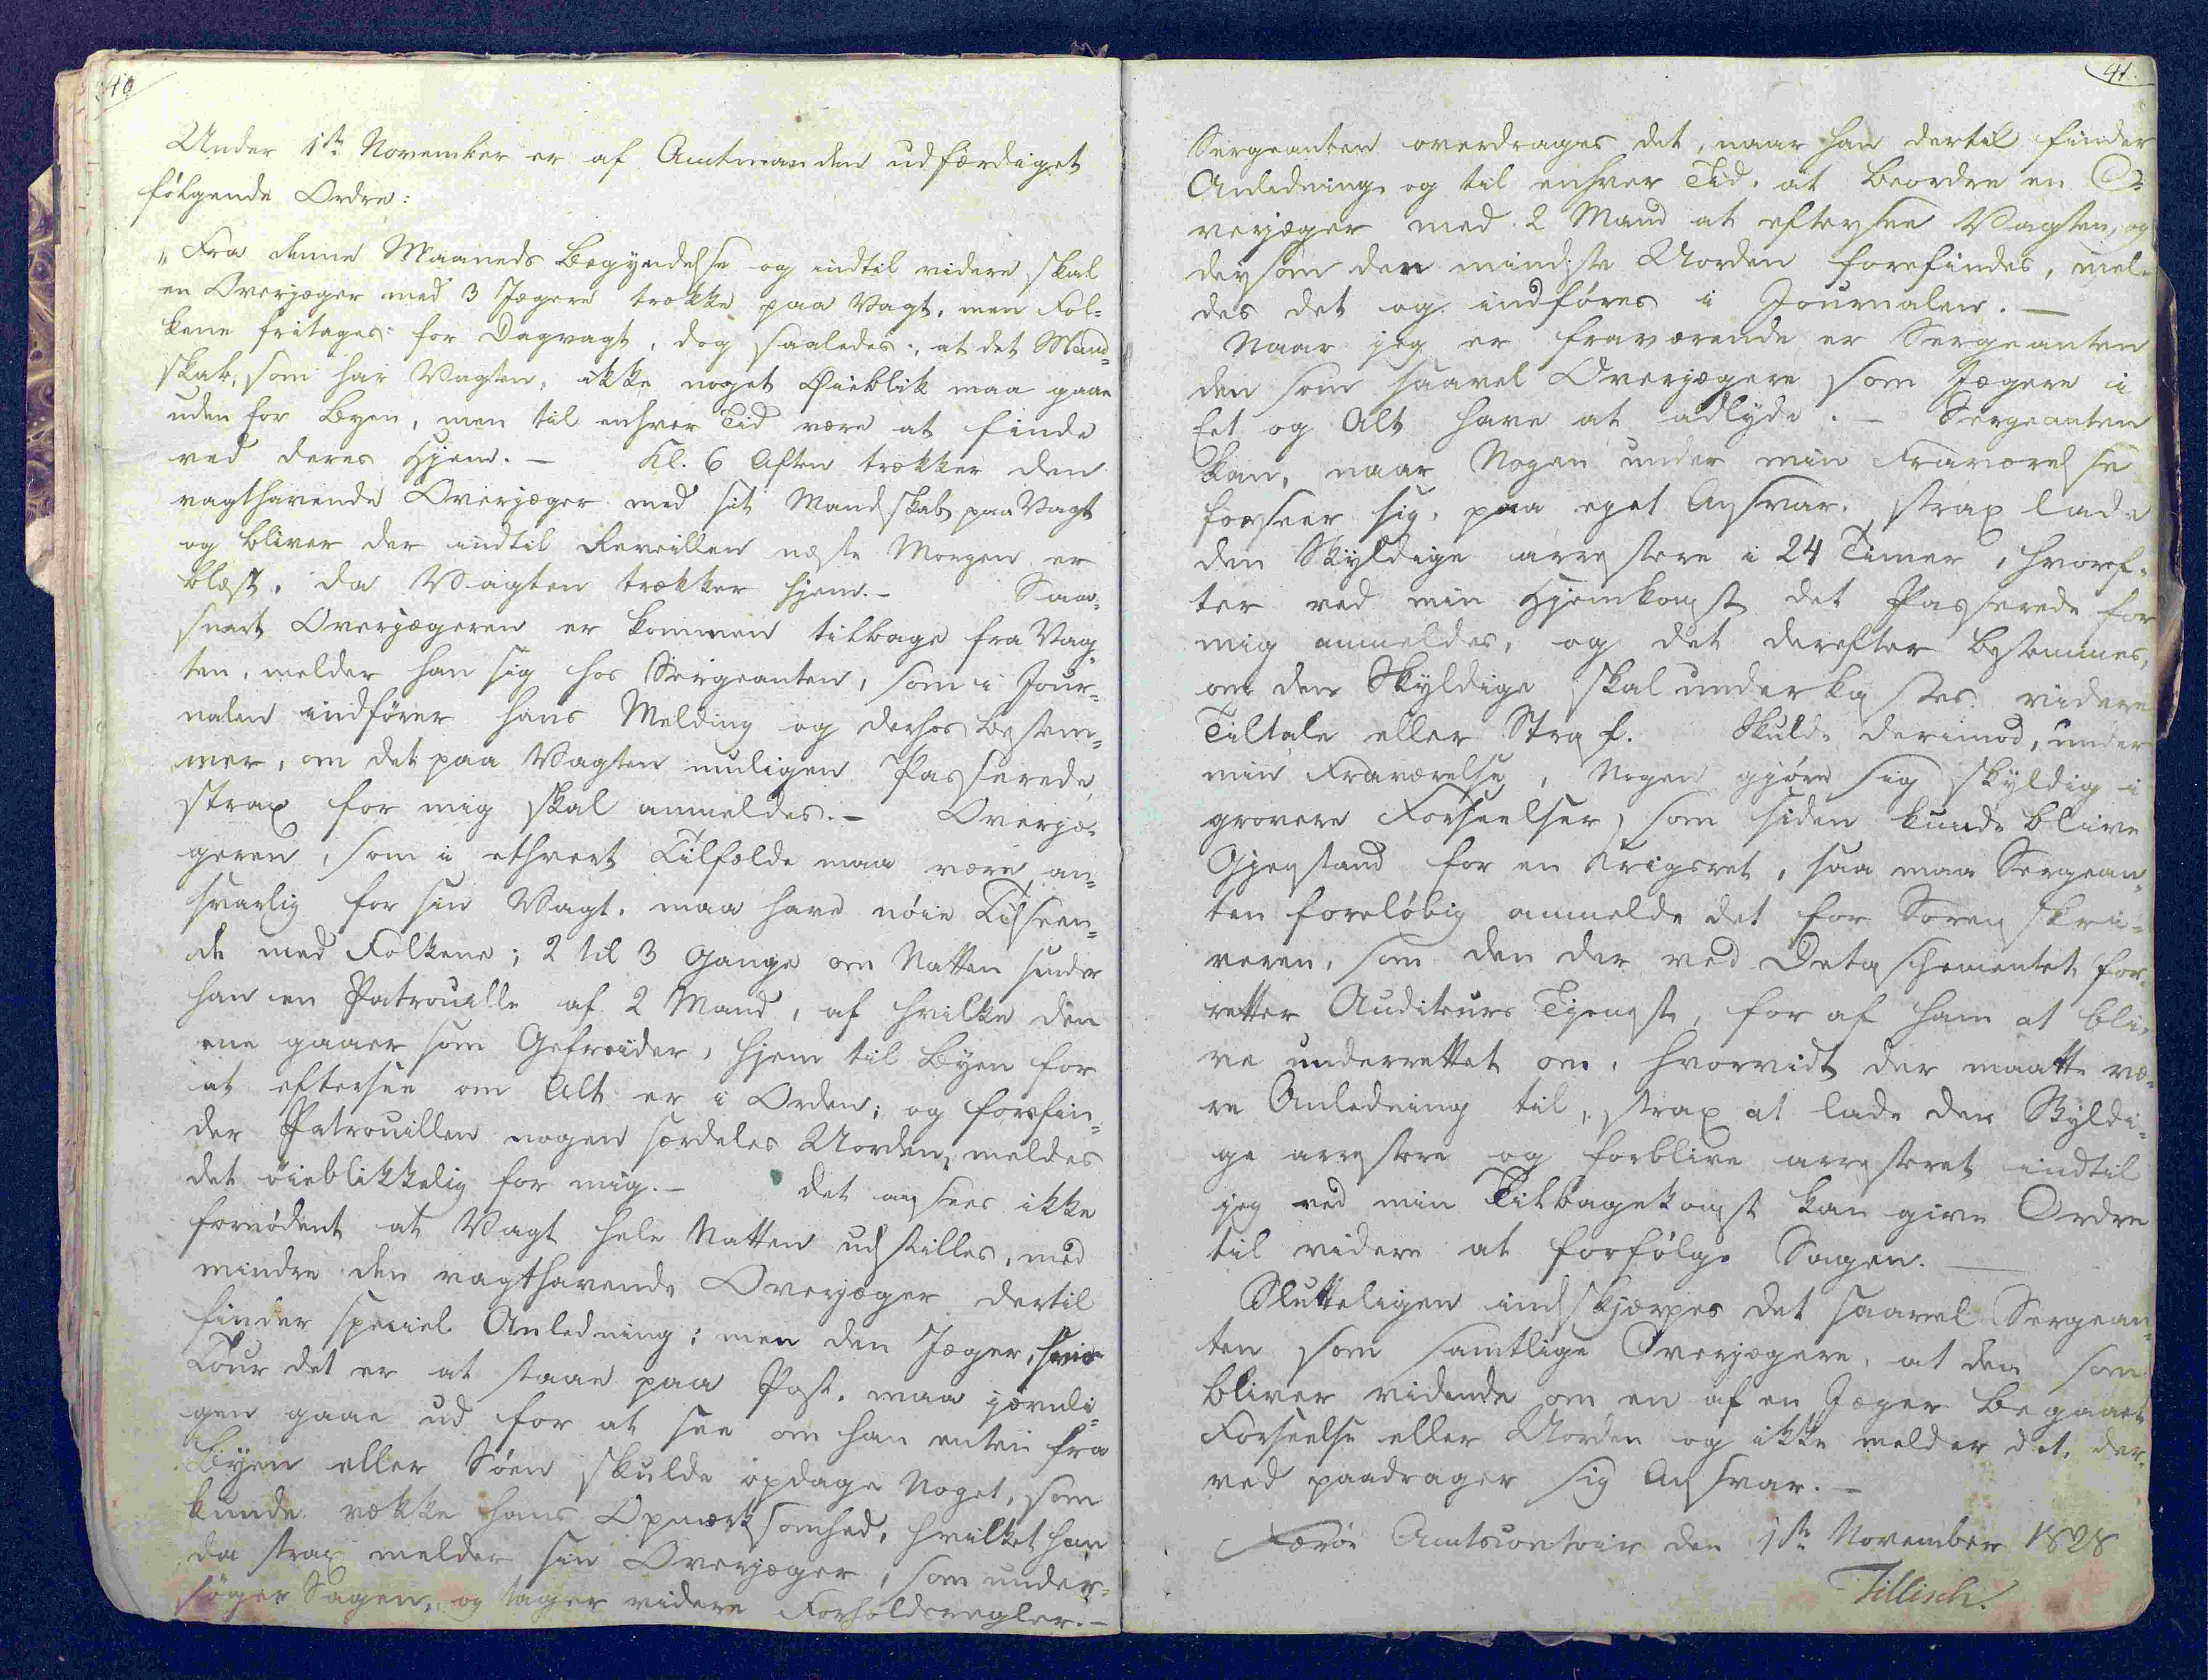 40
Under 1ste November er af Amtmanden udfærdiget
følgende Ordre:
"Fra denne Maaneds Begyndelse og indtil videre skal
en Overjæger med 3 Jægere trække paa Vagt, men Fol=
kene fritages for Dagvagt, dog saaledes, at det Mand=
skab, som har Vagten, ikke noget Øieblik maa gaae
uden for Byen, men til enhver Tid være at finde
ved deres Hjem. - Kl. 6 Aften trækker den
vagthavende Overjæger med sit Mandskab paa Vagt
og bliver der indtil Reveillen næste Morgen er
blæst, da Vagten trækker hjem. - Saa=
snart Overjægeren er kommen tilbage fra Vag=
ten, melder han sig hos Sergeanten, som i Jour=
nalen indfører hans Melding og derhos bestem=
mer, om det paa Vagten muligen Passerede,
strax for mig skal anmeldes. - Overjæ=
geren, som i ethvert Tilfælde maa være an=
svarlig for sin Vagt, maa have nöie Tilseen=
de med Folkene; 2 til 3 Gange om Natten sender
han en Patrouille af 2 Mand, af hvilke den
ene gaaer som Gefreider, hjem til Byen for
at eftersee om Alt er i Orden; og forefin=
der Patrouillen nogen særdeles Uorden, meldes
det öieblikkelig for mig. - Det ansees ikke
fornödent at Vagt hele Natten udstilles, med
mindre den vagthavende Overjæger dertil
finder speciel Anledning; men den Jæger, hvis
Tour det er at staae paa Post, maa jævnli=
gen gaae ud for at see om han enten fra
Byen eller Söen skulde opdage Noget, som
kunde vække hans Opmærksomhed, hvilket han
da strax melder sin Overjæger, som under=
söger Sagen, og tager videre Forholdsregler. -
41.
Sergeanten overdrages det, naar han dertil finder
Anledning og til enhver Tid, at beordre en O=
verjæger med 2 Mand at eftersee Vagten, og
dersom den mindste Uorden forefindes, mel=
des det og indföres i Journalen. -
Naar jeg er fraværende er Sergeanten
den som saavel Overjægere som Jægere i
Eet og Alt have at adlyde. - Sergeanten
kan, naar Nogen under min Fraværelse
forseer sig, paa eget Ansvar, strax lade
den Skyldige arrestere i 24 Timer, hvoref=
ter ved min Hjemkomst det Passerede for
mig anmeldes, og det derefter bestemmes,
om den Skyldige skal underkastes videre
Tiltale eller Straf. Skulde derimod, under
min Fraværelse, Nogen gjöre sig skyldig i
grovere Forseelser, som siden kunde blive
Gjenstand for en Krigsret, saa maa Sergean=
ten forelöbig anmelde det for Sorenskri=
veren, som den der ved Detaschementet for=
retter Auditeurs Tjeneste, for af ham at bli=
ve underrettet om, hvorvidt der maatte væ=
re Anledning til, strax at lade den Skyldi=
ge arrestere og forblive arresteret indtil
jeg ved min Tilbagekomst kan give Ordre
til videre at forfölge Sagen. —
Slutteligen indskjærpes det saavel Sergean=
ten som samtlige Overjægere, at den som
bliver vidende om en af en Jæger begaaet
Forseelse eller Uorden og ikke melder det, der=
ved paadrager sig Ansvar. -
Færöe Amtscontoir den 1ste November 1828
Tillisch.